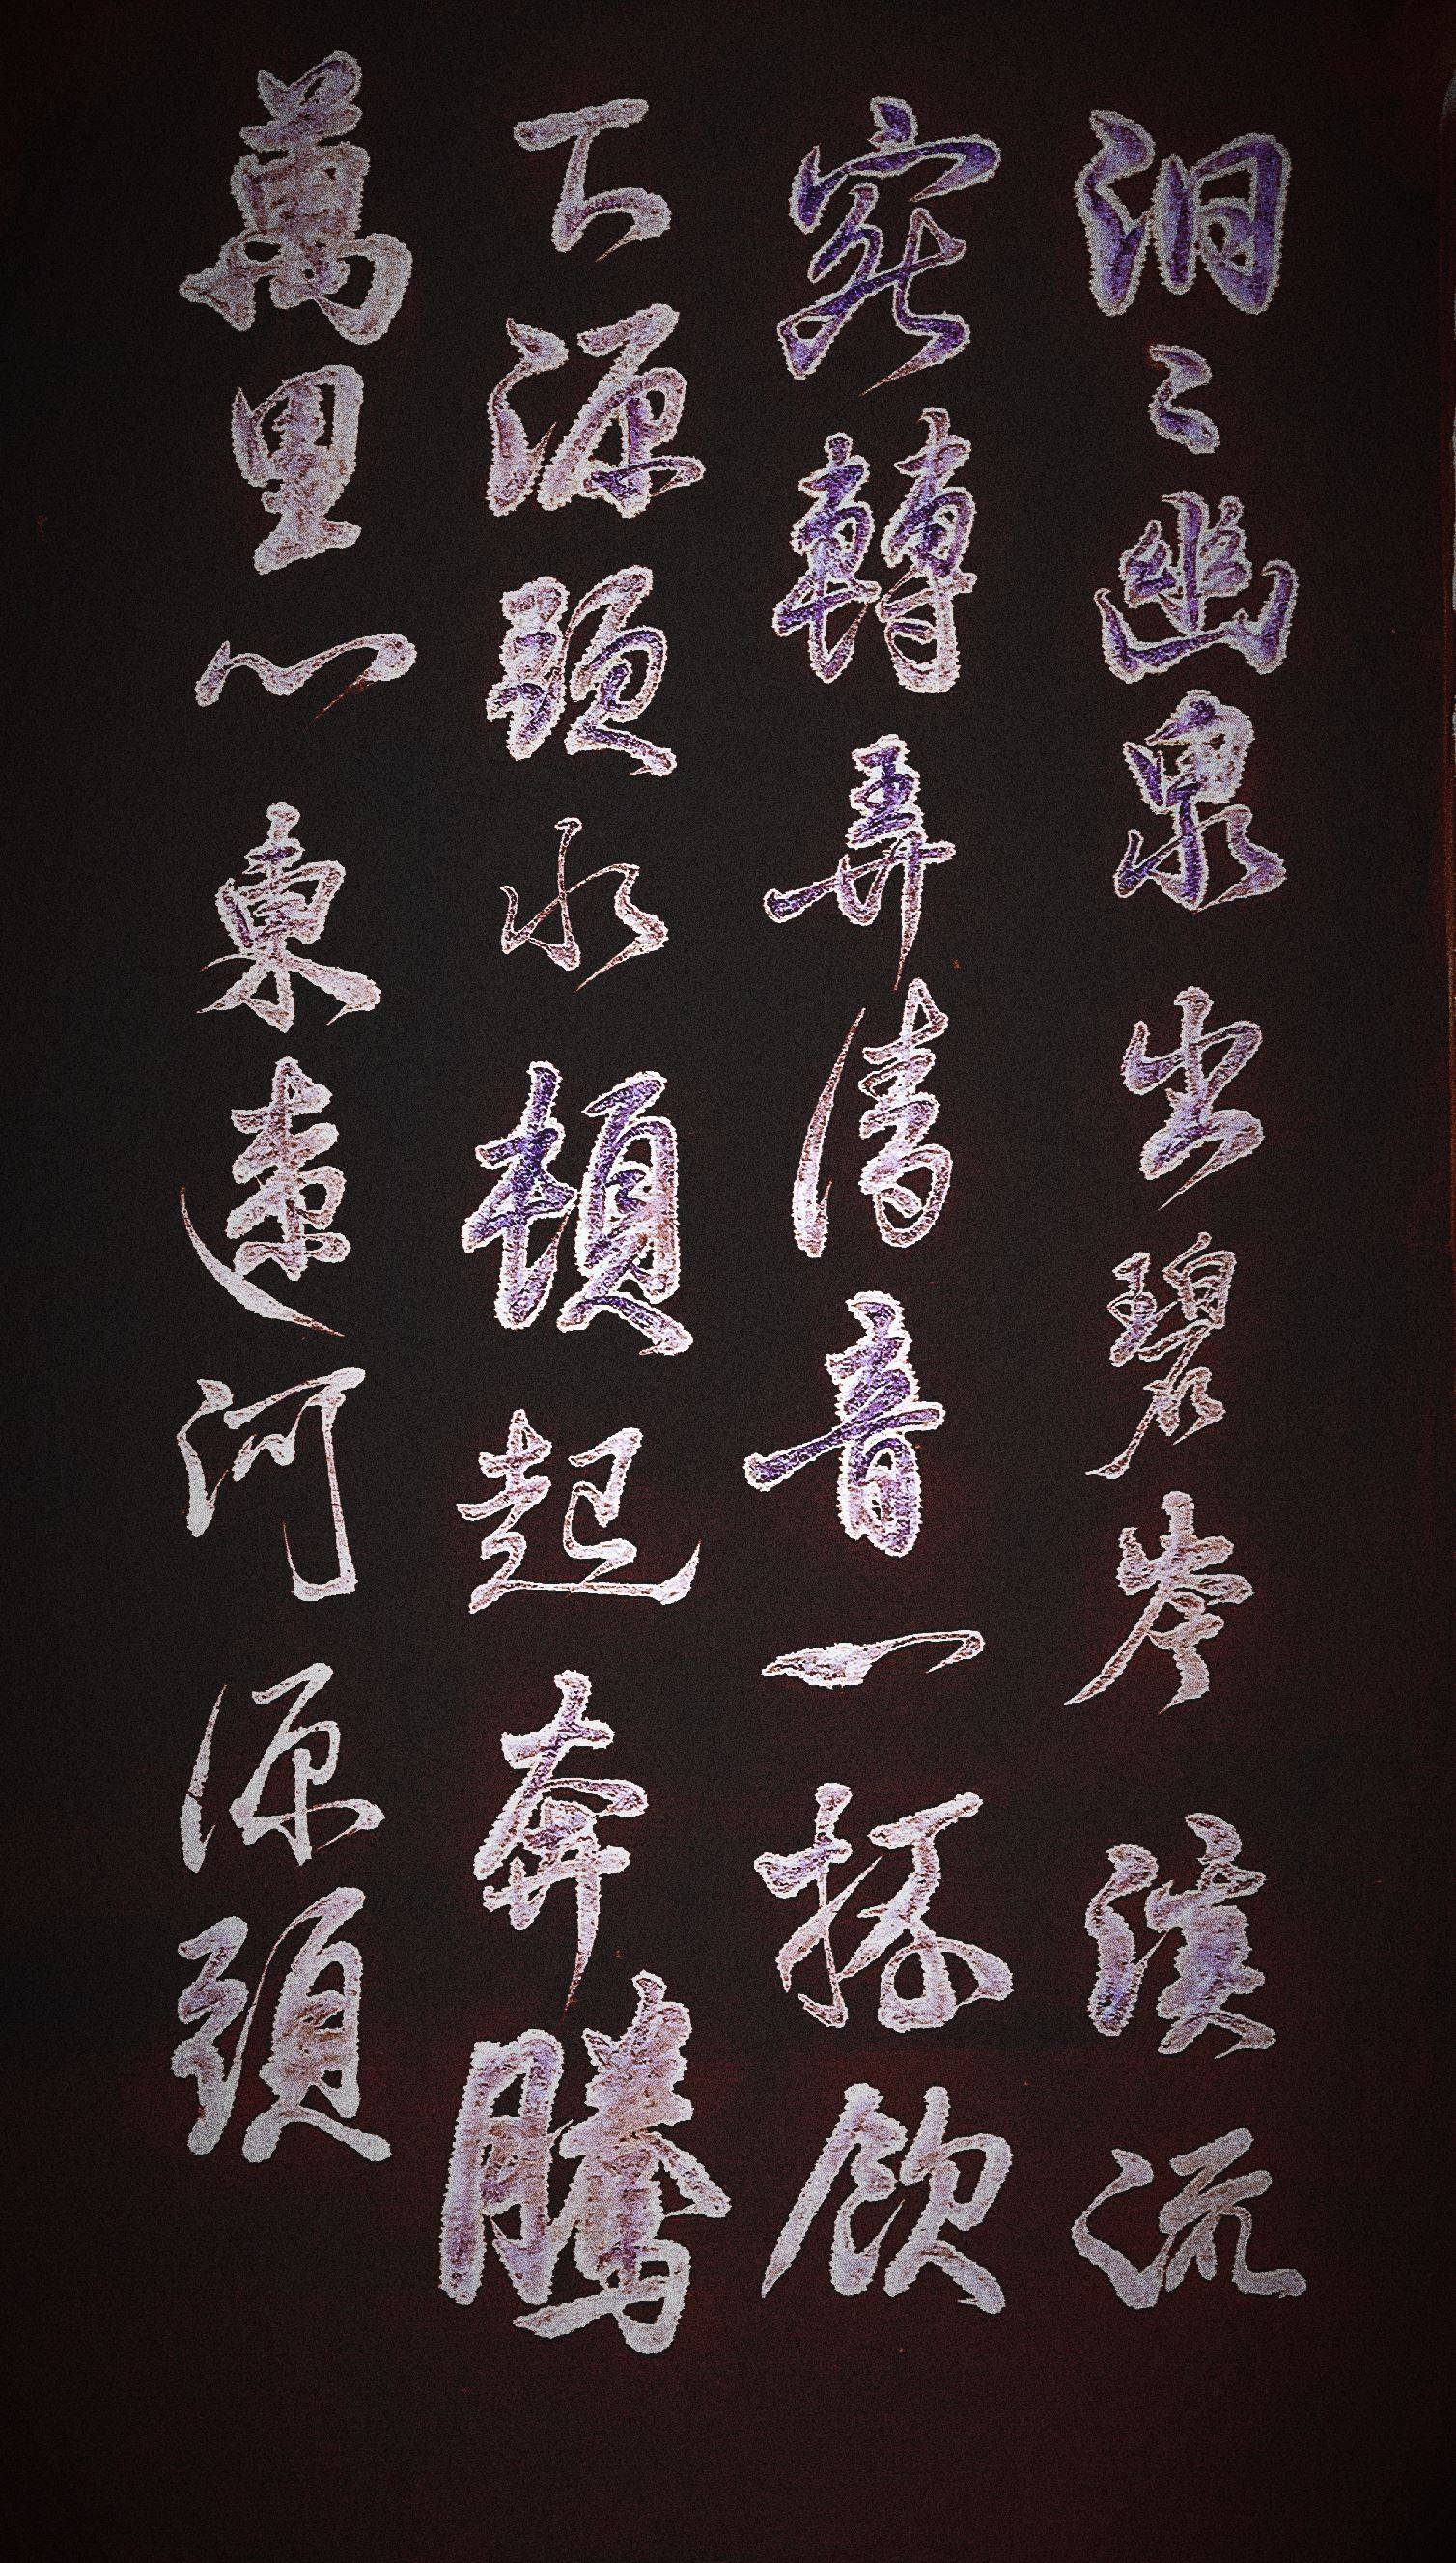 泂々幽泉出碧岑溪流
宛轉弄清音一杯飲
下源頭水頓起奔騰
萬里心東遼河源頭